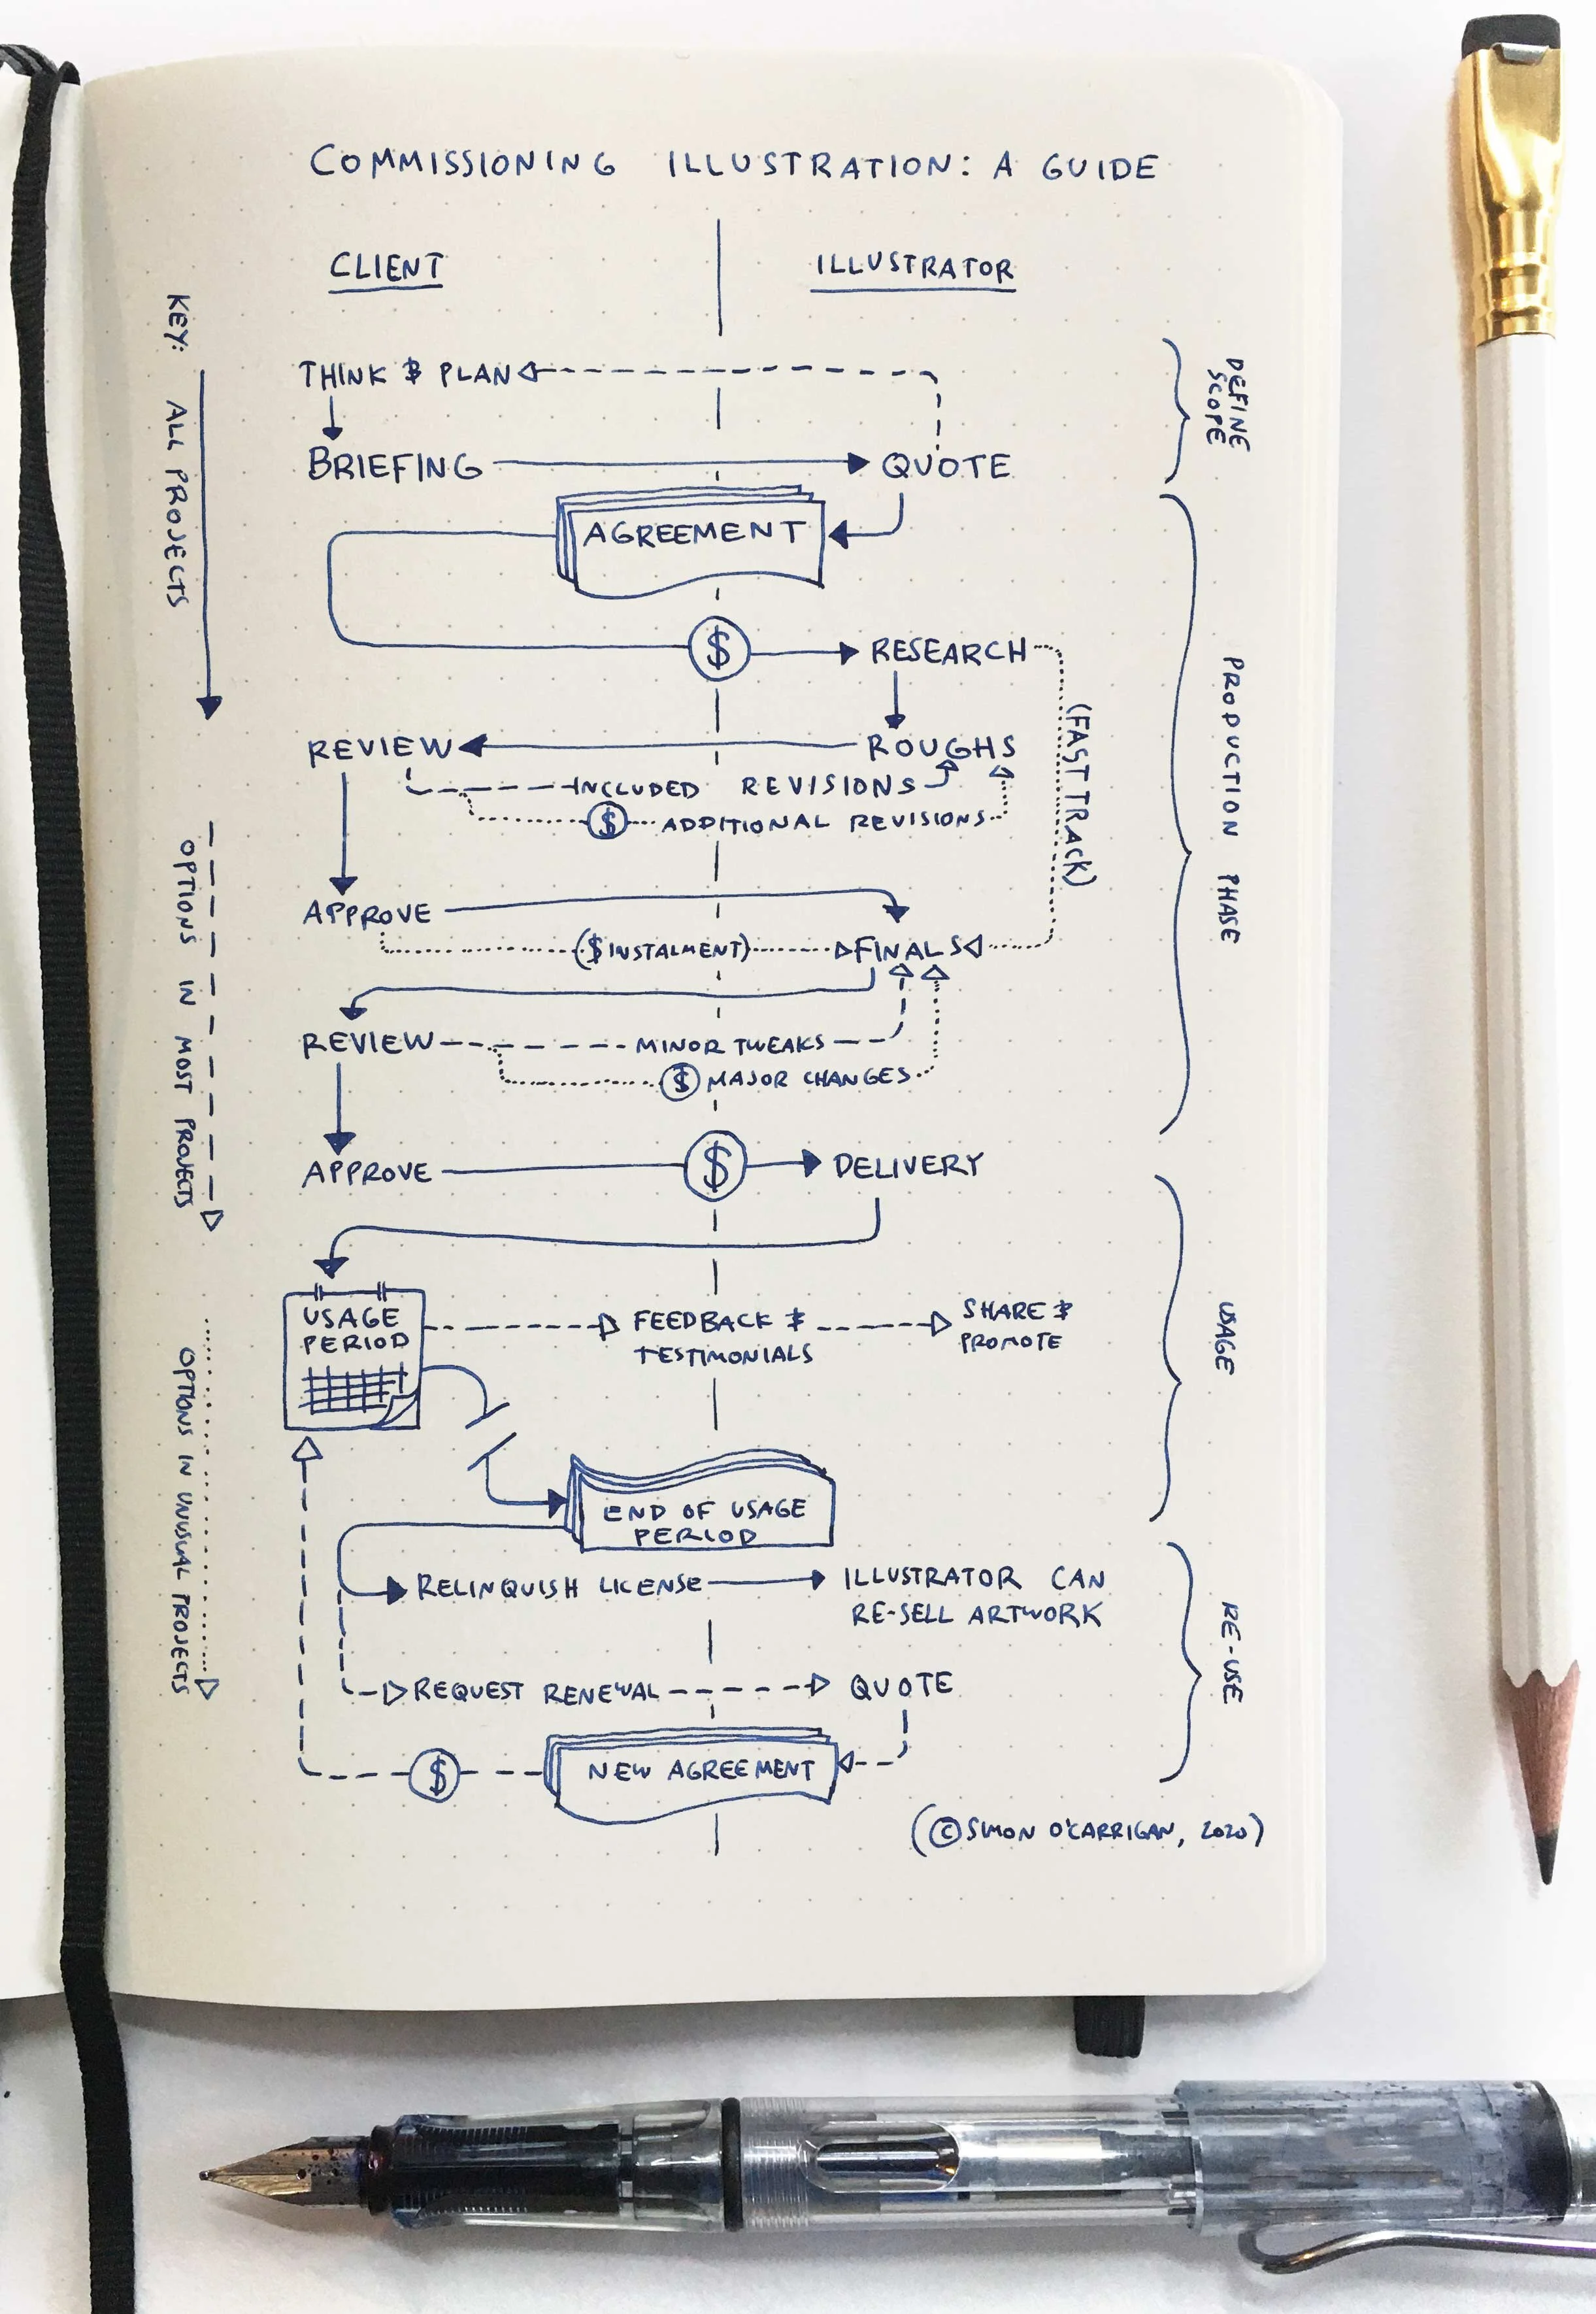 COMMISSIONING ILLUSTRATION: A GUIDE
CLIENT
ILLUSTRATOR
KEY: ALL PROJECTS
OPTIONS IN MOST PROJECTS
OPTIONS IN UNUSUAL PROJECTS
THINK & PLAN
BRIEFING
QUOTE
DEFINE
SCOPE
AGREEMENT
$
RESEARCH
REVIEW
ROUGHS
INCLUDED REVISIONS
$ ADDITIONAL REVISIONS
(FAST TRACK)
APPROVE
($ INSTALMENT)
FINALS
REVIEW
MINOR TWEAKS
$ MAJOR CHANGES
PRODUCTION PHASE
APPROVE
$
DELIVERY
USAGE
PERIOD
FEEDBACK &
TESTIMONIALS
SHARE &
PROMOTE
USAGE
END OF USAGE
PERIOD
RELINQUISH LICENSE
ILLUSTRATOR CAN
RE-SELL ARTWORK
REQUEST RENEWAL
QUOTE
RE-USE
$
NEW AGREEMENT
(© SIMON O'CARRIGAN, 2020)